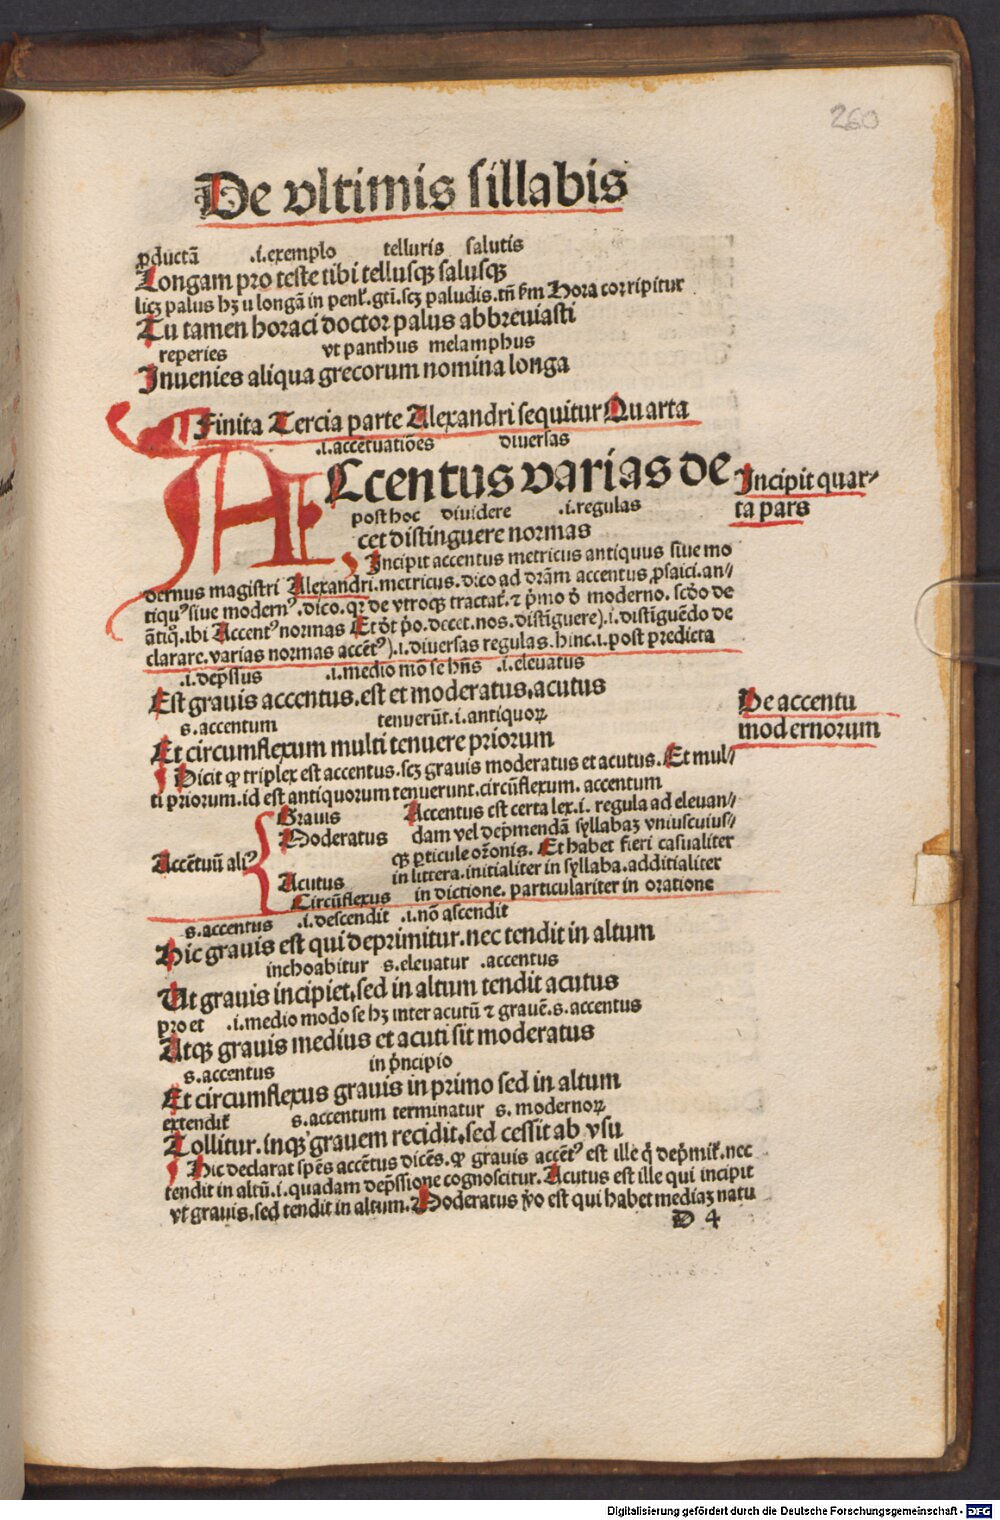 260
De vltimis sillabis
ꝓductā .i.exemplo telluris salutis
Longam pro teste tibi tellusqꝫ salusqꝫ
licꝫ palus hꝫ u longā in penl̄. gtī. scꝫ paludis. tn̄ ẜm Hora corripitur
Tu tamen horaci doctor palus abbreuiasti
reperies vt panthus melamphus
Inuenies aliqua grecorum nomina longa
Finita Tercia parte Alexandri sequitur Quarta
.i.accētuatiōes diuersas
ACcentus varias de
Incipit quar⸗
ta pars
post hoc diuidere .i.regulas
cet distinguere normas
Incipit accentus metricus antiquus siue mo
dernus magistri Alexandri. metricus. dico ad dr̄am accentus ꝓsaici. an⸗
tiqu᷒ siue modern᷒. dico. qꝛ de vtroqꝫ tractat᷑. ⁊ p̄mo ꝟo moderno. scd̓o de
ātiq̊. ibi Accent᷒ normas Et d̓t p̄o. decet. nos. distīguere).i. distīguēdo de
clarare. varias normas accēt᷒).i. diuersas regulas. hinc.i. post predicta
.i. dep̄ssus .i. medio mō se hn̄s .i. eleuatus
Est grauis accentus. est et moderatus. acutus
s. accentum tenuerūt. i. antiquoꝝ
Et circumflexum multi tenuere priorum
De accentu
modernorum
Dicit ꝙ triplex est accentus. scꝫ grauis moderatus et acutus. Et mul⸗
ti priorum. id est antiquorum tenuerunt. circūflexum. accentum
Accētuū ali᷒
Grauis
Moderatus
Acutus
Circūflexus
Accentus est certa lex. i. regula ad eleuan⸗
dam vel dep̄mendā syllabaꝫ vniuscuius⸗
qꝫ ꝑticule or̄onis. Et habet fieri casualiter
in littera. initialiter in syllaba. additialiter
in dictione. particulariter in oratione
s. accentus .i. descendit .i. nō ascendit
Hic grauis est qui deprimitur. nec tendit in altum
inchoabitur s. eleuatur .accentus
Ut grauis incipiet. sed in altum tendit acutus
pro et .i. medio modo se hꝫ inter acutū ⁊ grauē. s. accentus
Atqꝫ grauis medius et acuti sit moderatus
s. accentus in p̄ncipio
Et circumflexus grauis in primo sed in altum
extendit᷑ s. accentum terminatur s. modernoꝝ
Tollitur. inqꝫ grauem recidit. sed cessit ab vsu
Hic declarat sp̄es accētus dicēs. ꝙ grauis accēt᷒ est ille q̇ dep̄mit᷑. nec
tendit in altū. i. quadam dep̄ssione cognoscitur. Acutus est ille qui incipit
vt grauis. sed tendit in altum. Moderatus ꝟo est qui habet mediaꝫ natu
D 4
Digitalisierung gefördert durch die Deutsche Forschungsgemeinschaft - DFG